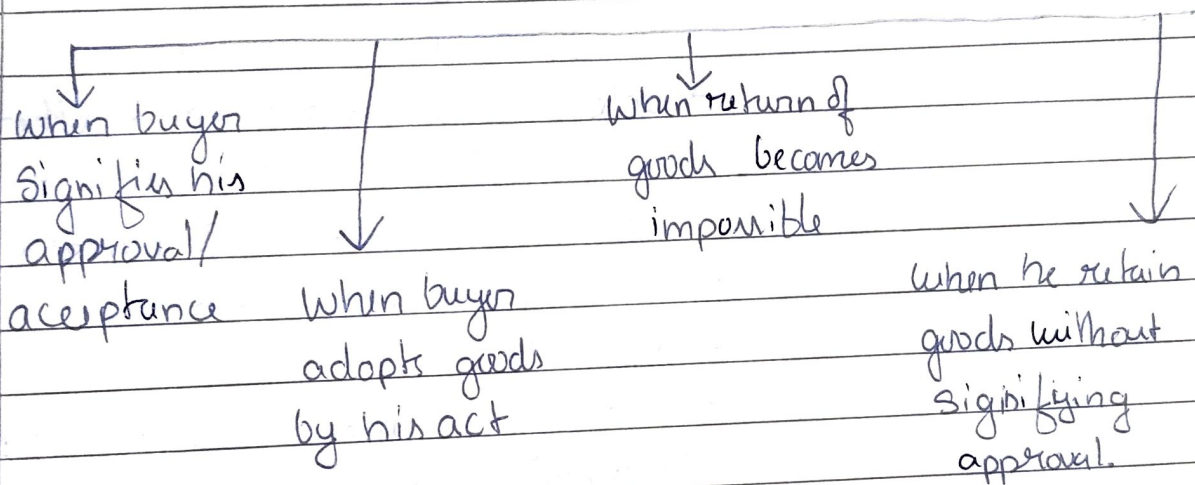 When buyer
signifies his
approval/
aceeptance
When buyer
adopts goods
by his act
When return of
goods becomes
impossible
When he retain
goods without
signifying
approval.